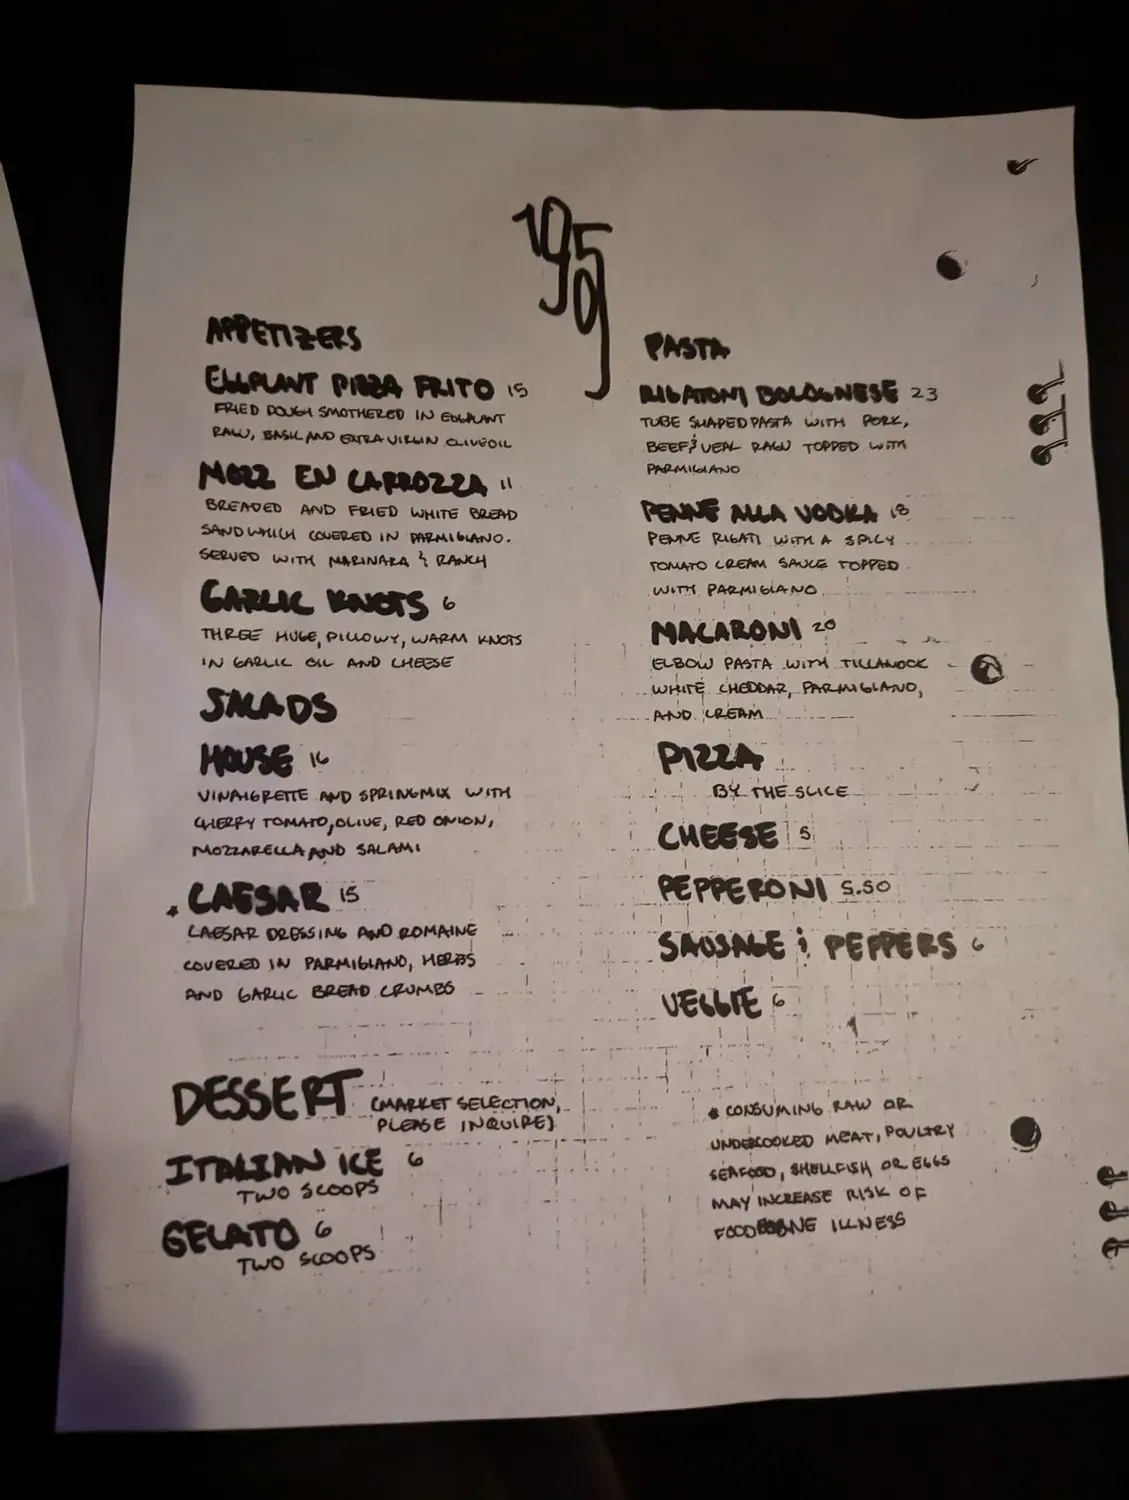 1950
APPETIZERS
EGGPLANT PIZZA FRITO 15
FRIED DOUGH SMOTHERED IN EGGPLANT
RAGU, BASIL AND EXTRA VIRGIN OLIVE OIL
MOZZ EN CARROZZA 11
BREADED AND FRIED WHITE BREAD
SANDWHICH COVERED IN PARMIGIANO.
SERVED WITH MARINARA & RANCH
GARLIC KNOTS 6
THREE HUGE, PILLOWY, WARM KNOTS
IN GARLIC OIL AND CHEESE
SALADS
HOUSE 16
VINAIGRETTE AND SPRINGMIX WITH
CHERRY TOMATO, OLIVE, RED ONION,
MOZZARELLA AND SALAMI
* CAESAR 15
CAESAR DRESSING AND ROMAINE
COVERED IN PARMIGIANO, HERBS
AND GARLIC BREAD CRUMBS
PASTA
RIGATONI BOLOGNESE 23
TUBE SHAPED PASTA WITH PORK,
BEEF & VEAL RAGU TOPPED WITH
PARMIGIANO
PENNE ALLA VODKA 18
PENNE RIGATI WITH A SPICY
TOMATO CREAM SAUCE TOPPED
WITH PARMIGIANO
MACARONI 20
ELBOW PASTA WITH TILLAMOOK
WHITE CHEDDAR, PARMIGIANO,
AND CREAM
PIZZA
BY THE SLICE
CHEESE 5
PEPPERONI 5.50
SAUSAGE & PEPPERS 6
VEGGIE 6
DESSERT (MARKET SELECTION,
PLEASE INQUIRE)
ITALIAN ICE 6
TWO SCOOPS
GELATO 6
TWO SCOOPS
* CONSUMING RAW OR
UNDERCOOKED MEAT, POULTRY
SEAFOOD, SHELLFISH OR EGGS
MAY INCREASE RISK OF
FOODBORNE ILLNESS